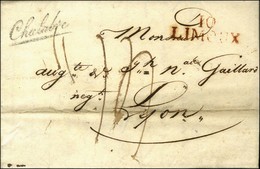 Chalabre
10
LIMOUX
Monsieur
aug.te & J.h n. Gaillard
neg.t
Lyon